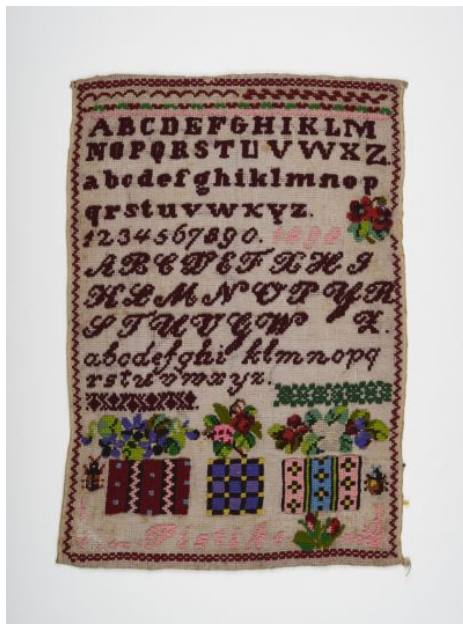 ABCDEFGHIKLM
NOPQRSTUVWXZ.
abcdefghiklmnop
qrstuvwxyz.
1234567890.
ABCDEFXHI
KLMNOPYR
STUVGW Z.
abcdefghi klmnopq
rstuvwxyz.